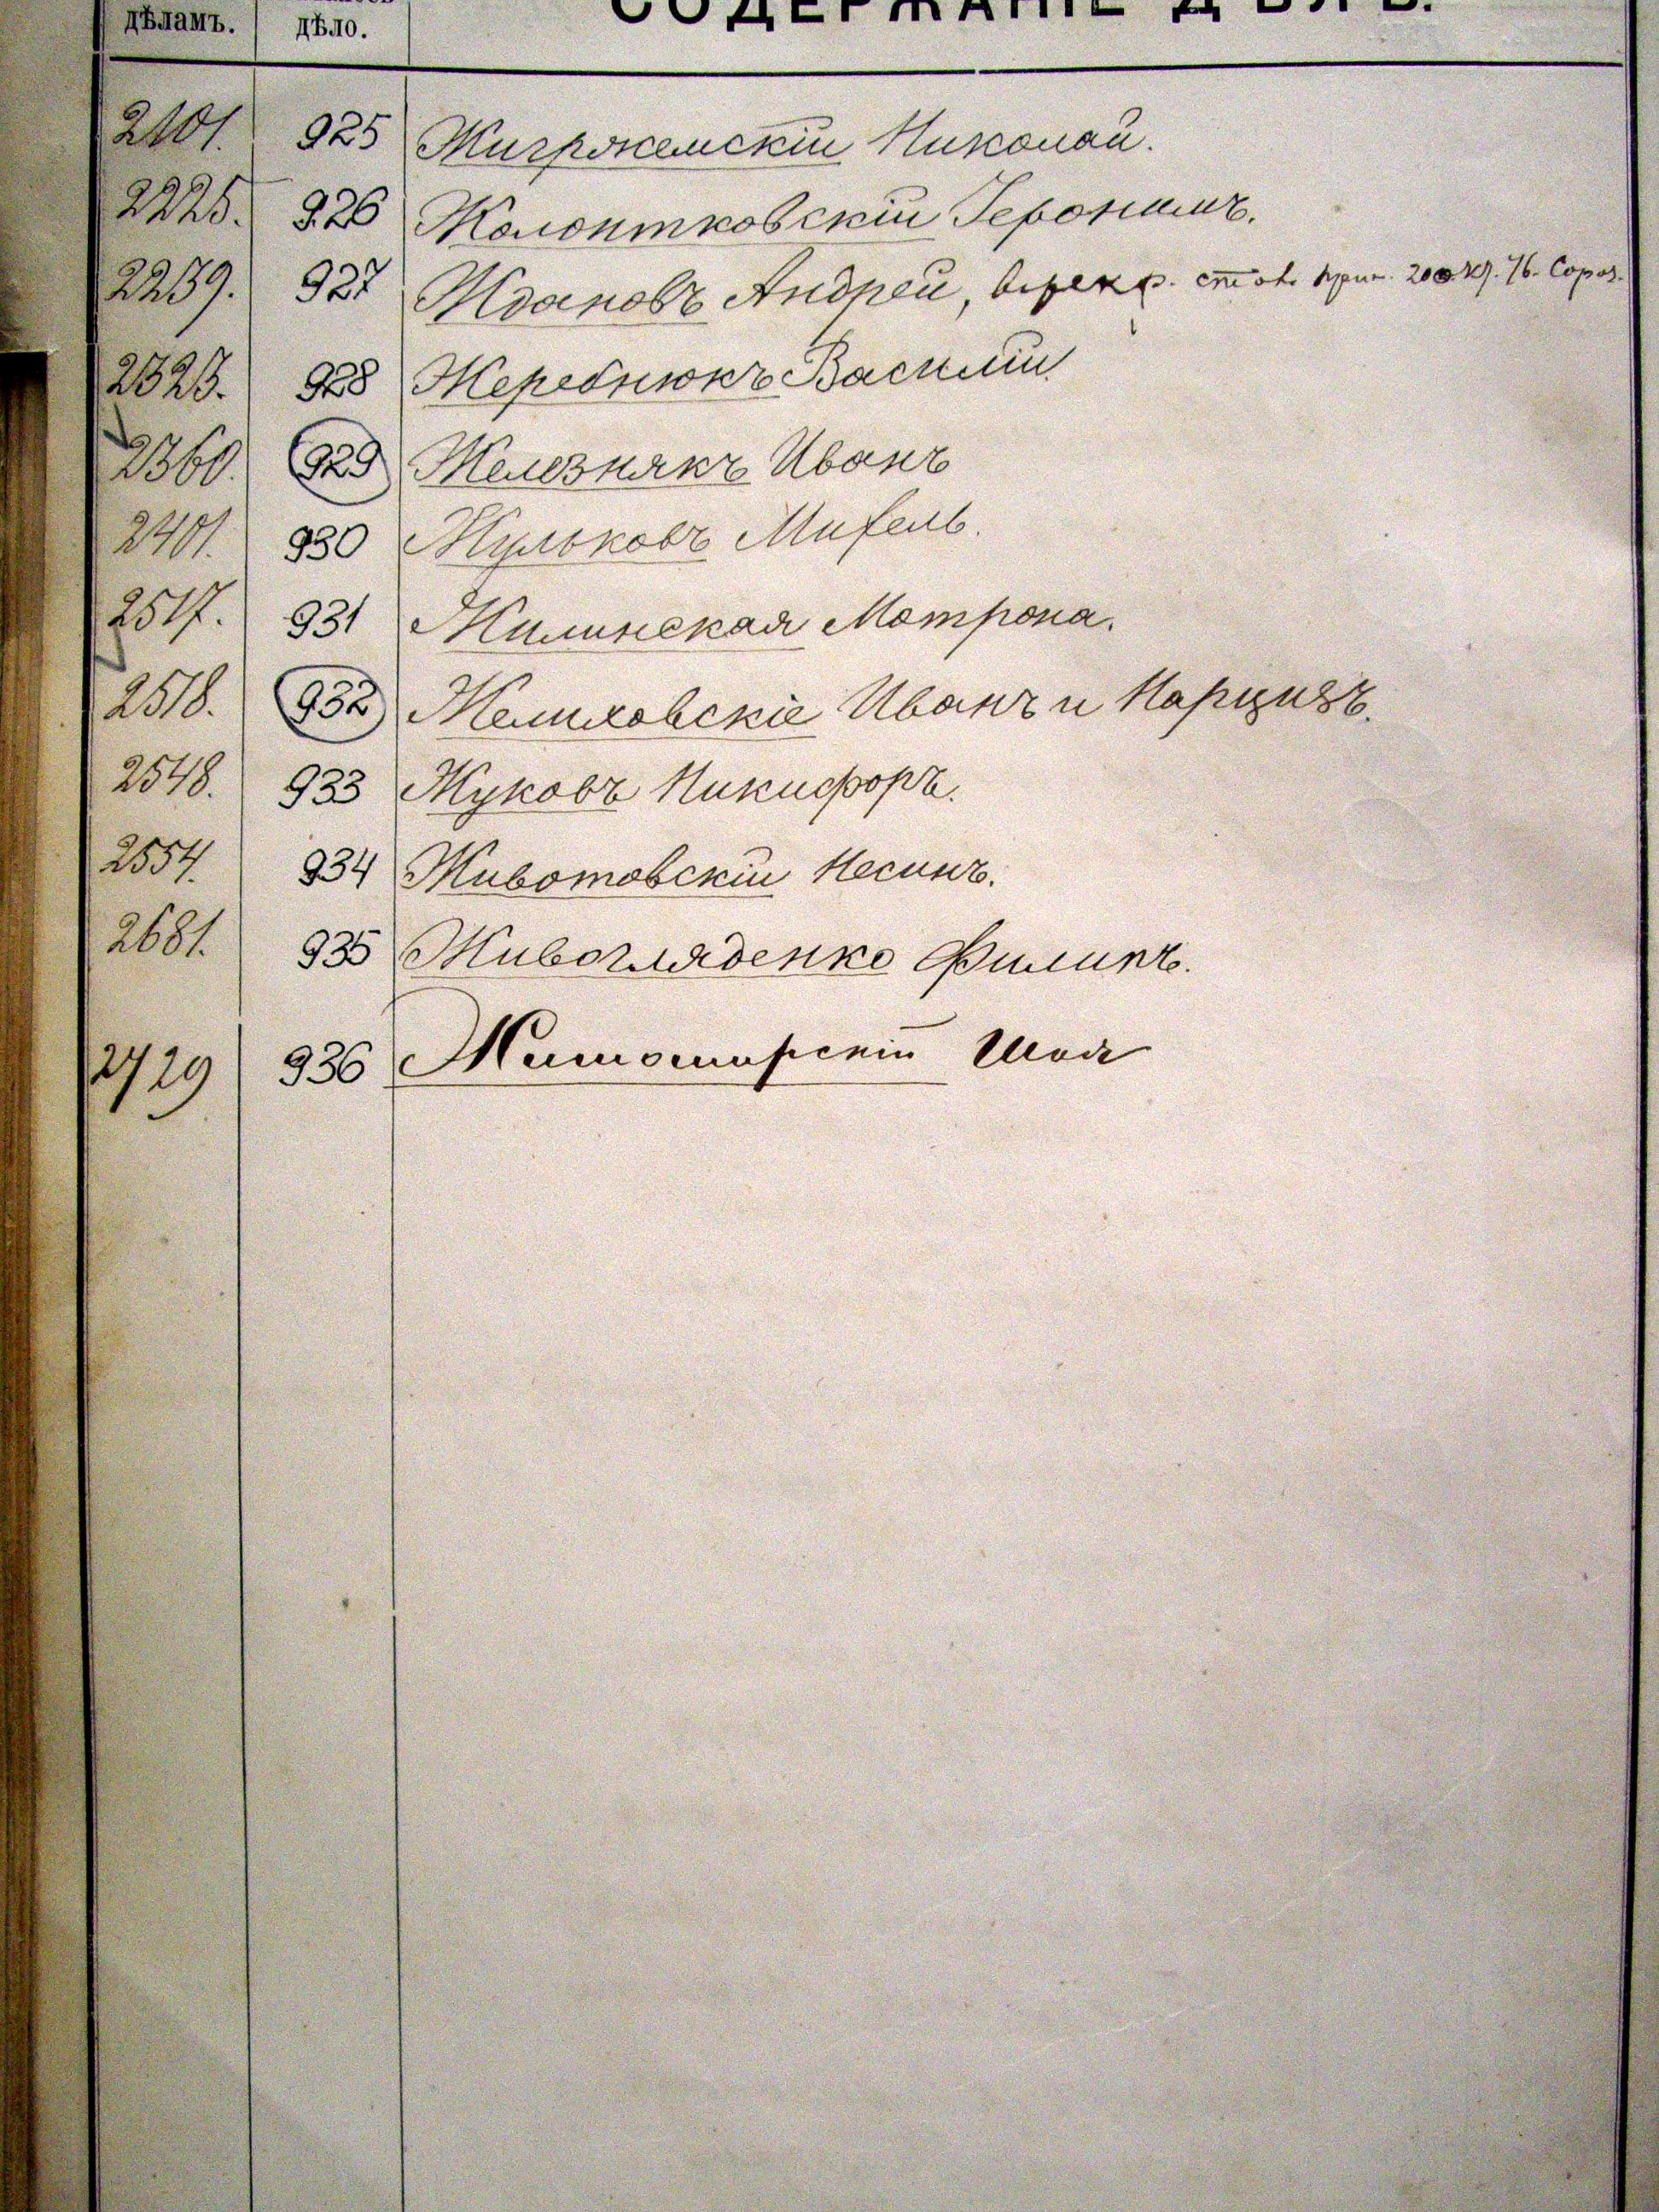 дѣламъ. дѣло. СОДЕРЖАНІЕ ДѢЛЪ.
2101. 925 Жигржемскій Николай.
2225. 926 Жолонтковскій Іеронимъ.
2239. 927 Ждановъ Андрей,
2323. 928 Жеребнюкъ Василій.
2360. 929 Железнякъ Иванъ
2401. 930 Жульковъ Михель.
2517. 931 Жилинская Мотрона.
2518. 932 Желиховскіе Иванъ и Нарцизъ.
2548. 933 Жуковъ Никифоръ.
2554. 934 Животовскій Несинъ.
2681. 935 Живогляденко Филипъ.
2729 936 Житомирскій